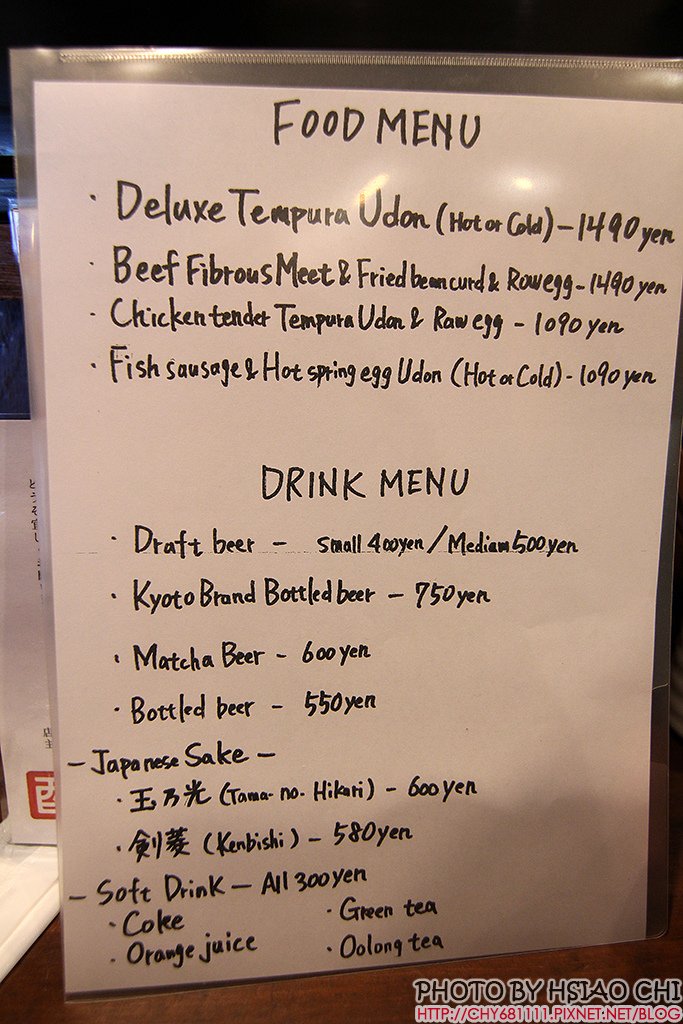 FOOD MENU
· Deluxe Tempura Udon (Hot or Cold) – 1490 yen
· Beef Fibrous Meet & Fried beancurd & Rowegg – 1490 yen
· Chicken tender Tempura Udon & Raw egg – 1090 yen
· Fish sausage & Hot spring egg Udon (Hot or Cold) – 1090 yen
DRINK MENU
· Draft beer – small 400yen / Medium 500yen
· Kyoto Brand Bottled beer – 750yen
· Matcha Beer – 600yen
· Bottled beer – 550yen
– Japanese Sake –
· 玉乃光 (Tama-no-Hikari) – 600yen
· 剣菱 (Kenbishi) – 580yen
– Soft Drink – All 300yen
· Coke · Green tea
· Orange juice · Oolong tea
店主
酉
PHOTO BY HSIAO CHI
HTTP://CHY681111.PIXNET.NET/BLOG